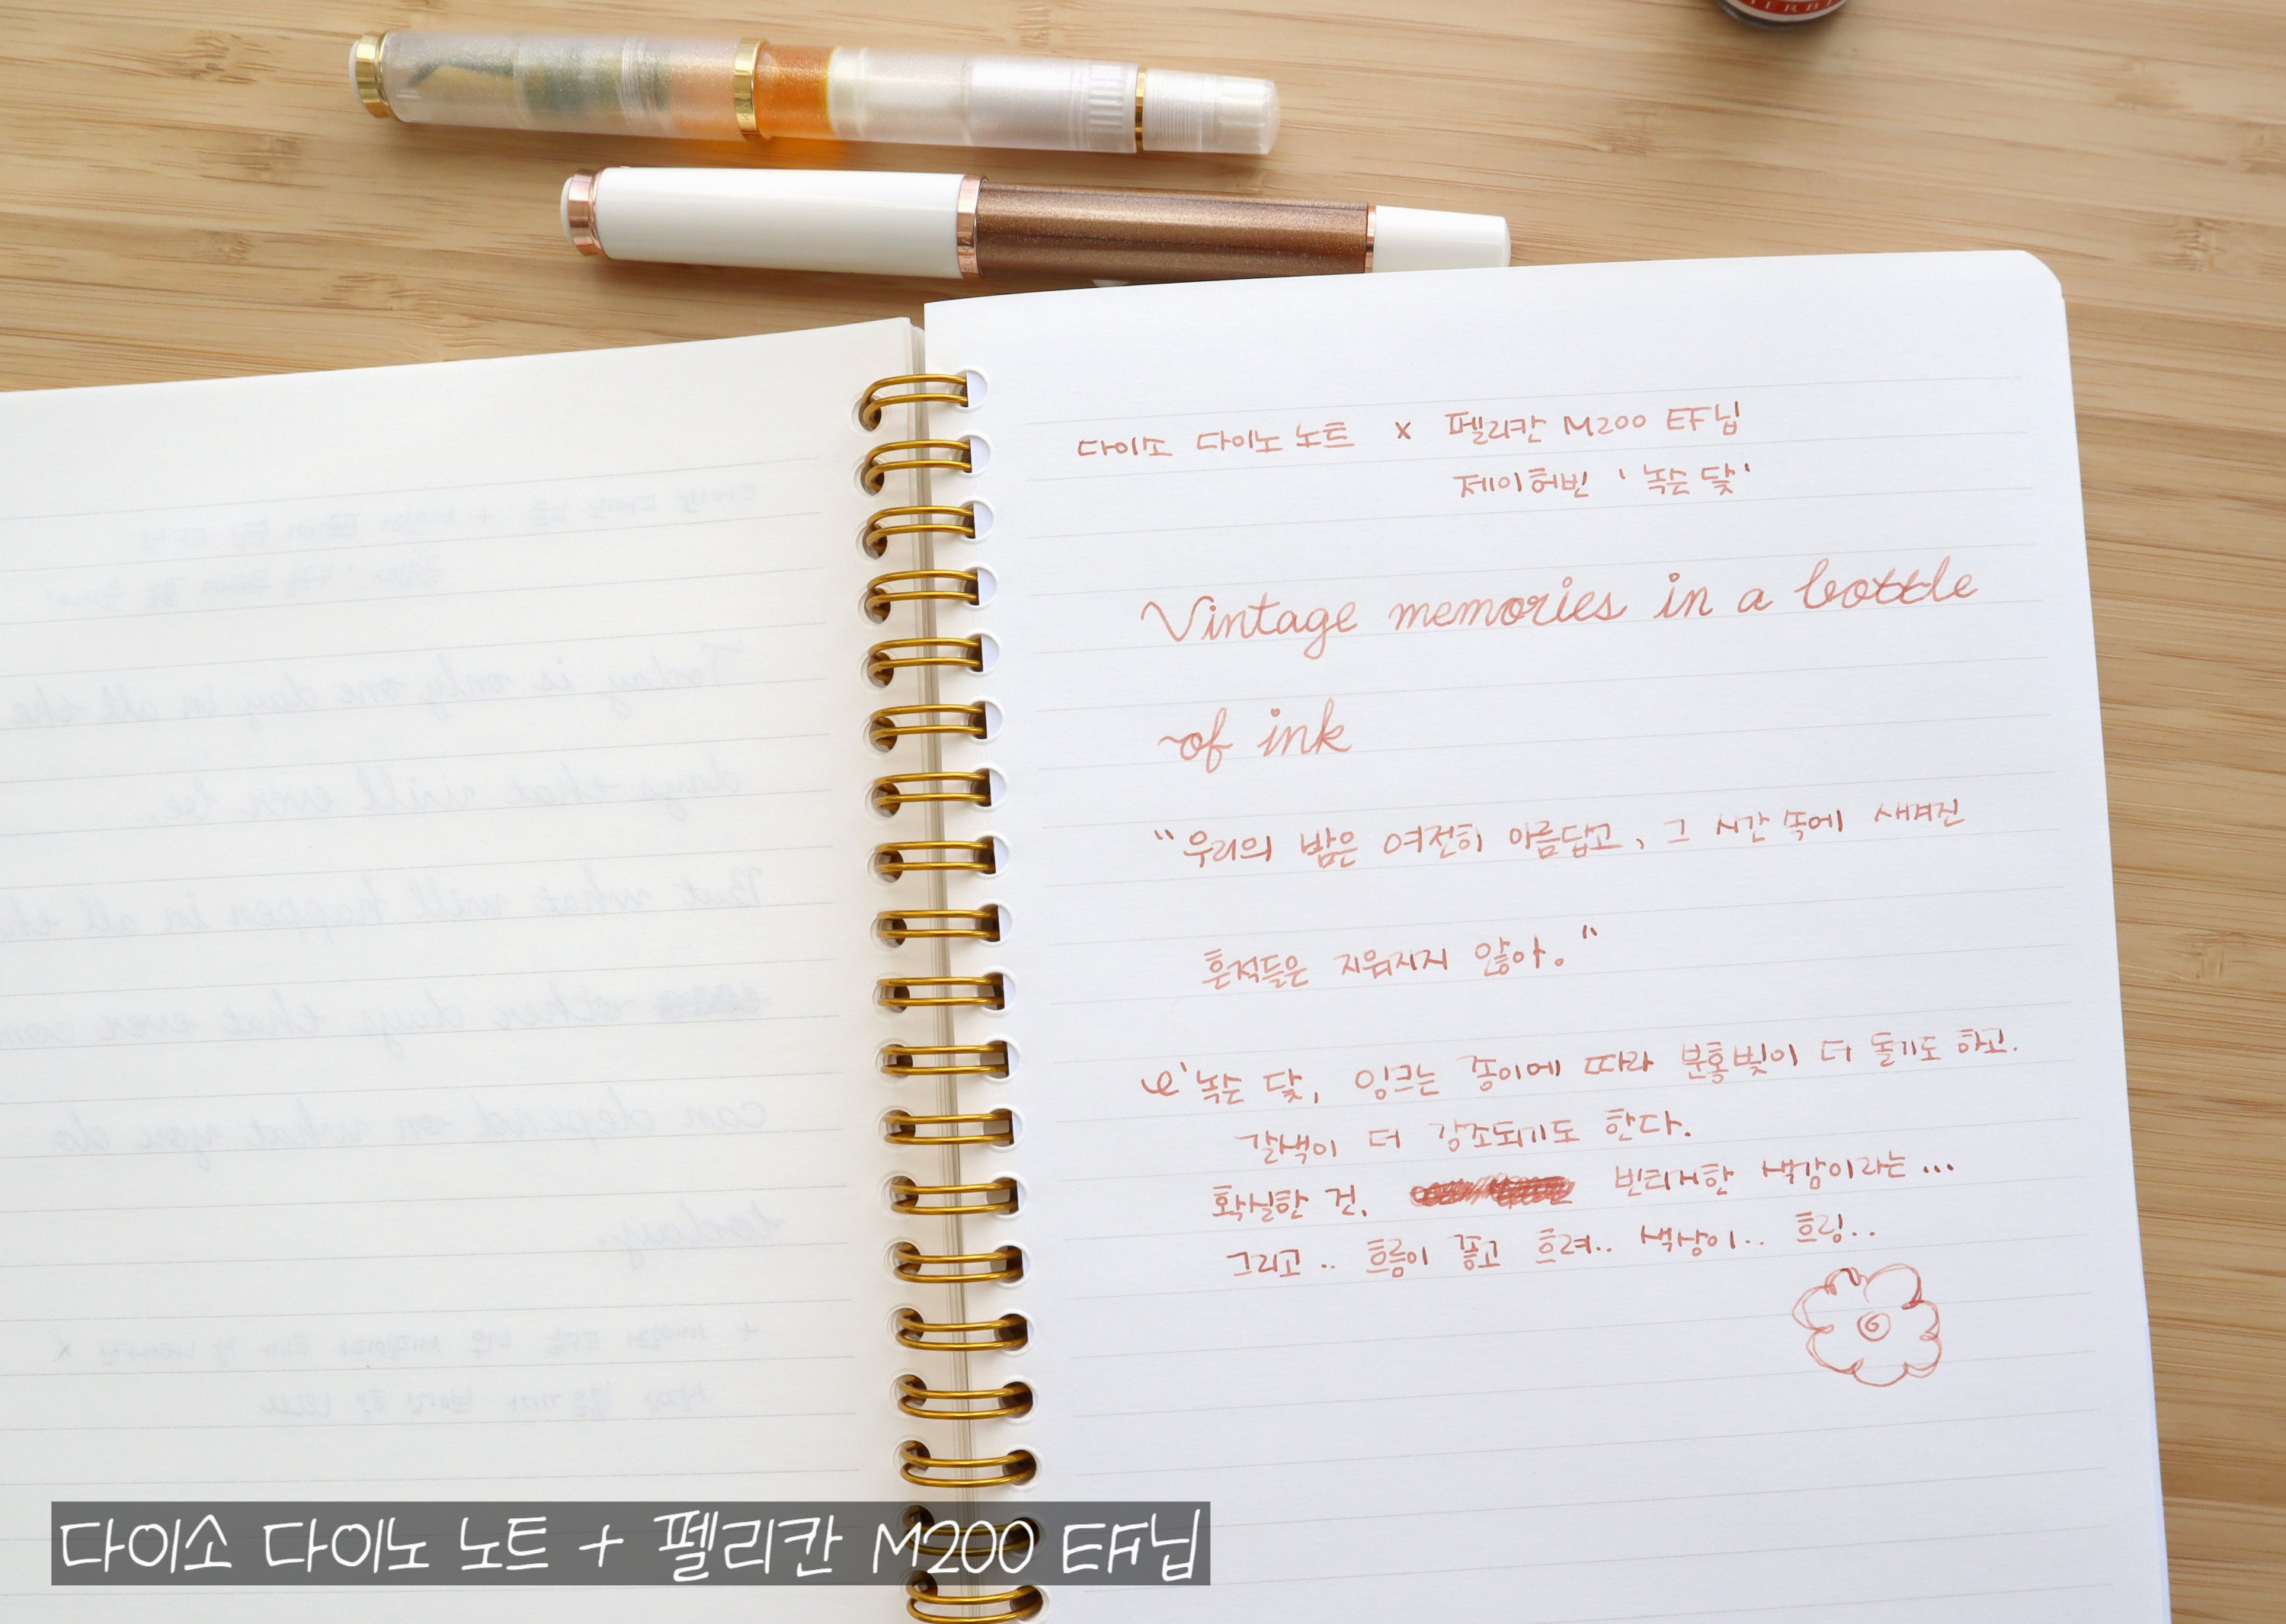 다이소 다이노 노트 x 펠리칸 M200 EF닙
제이허빈 '녹슨 닻'
Vintage memories in a bottle
of ink
"우리의 밤은 여전히 아름답고, 그 시간 속에 새겨진
흔적들은 지워지지 않아."
'녹슨 닻, 잉크는 종이에 따라 분홍빛이 더 돌기도 하고.
갈색이 더 강조되기도 한다.
확실한 건, 빈티지한 색감이라는...
그리고.. 흐름이 좋고 흐려.. 색상이.. 흐링..
Today is only one day in all the
days that will ever be.
But what will happen in all the
other days that ever com
can depend on what you do
today.
다이소 다이노 노트 + 펠리칸 M200 EF닙